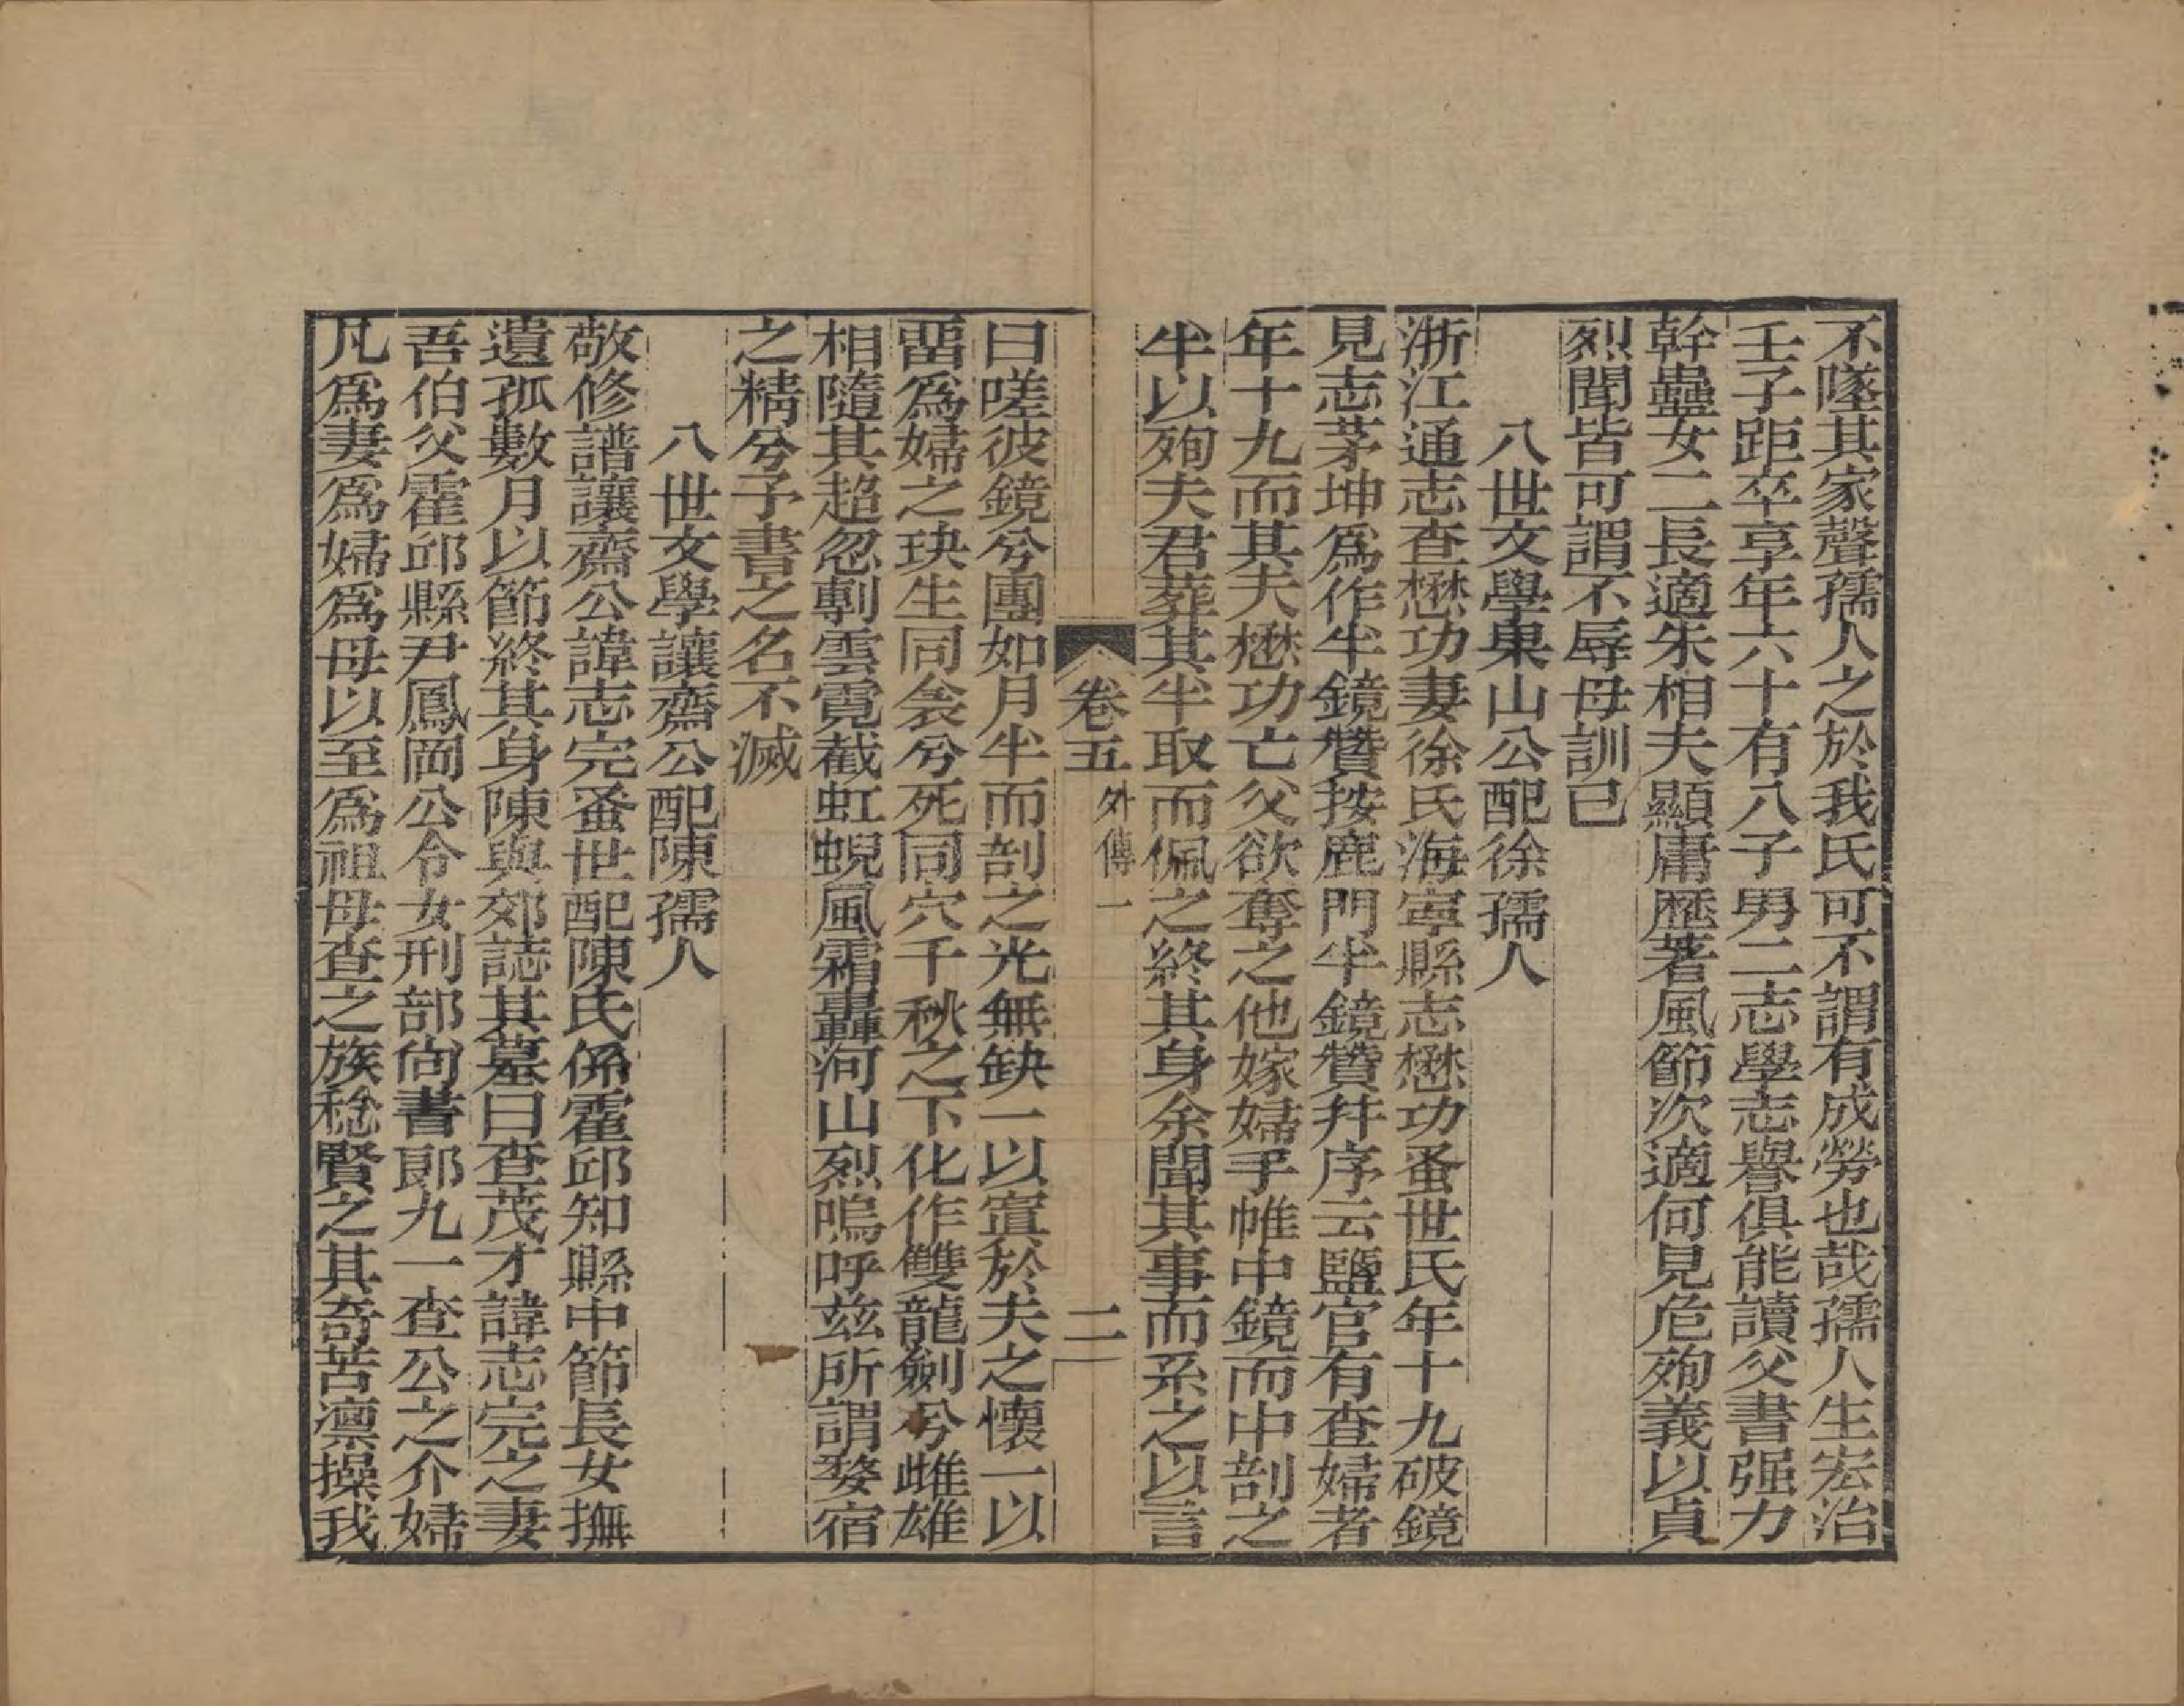 不墜其家聲孺人之於我氏可不謂有成勞也哉孺人生宏治
壬子距卒享年六十有八子男二志學志譽俱能讀父書强力
幹蠱女二長適朱相夫顯庸歷著風節次適何見危殉義以貞
烈聞皆可謂不辱母訓已
八世文學果山公配徐孺人
浙江通志查懋功妻徐氏海寧縣志懋功蚤世氏年十九破鏡
見志茅坤爲作半鏡贊按鹿門半鏡贊幷序云鹽官有查婦者
年十九而其夫懋功亡父欲奪之他嫁婦手帷中鏡而中剖之
半以殉夫君葬其半取而佩之終其身余聞其事而系之以言
卷五 外傳一 二
曰嗟彼鏡兮團如月半而剖之光無缺一以寘於夫之懷一以
畱爲婦之玦生同衾兮死同穴千秋之下化作雙龍劍兮雌雄
相隨其超忽剸雲霓截虹蜺風霜轟河山烈嗚呼兹所謂婺宿
之精兮予書之名不滅
八世文學讓齋公配陳孺人
敬修譜讓齋公諱志完蚤世配陳氏係霍邱知縣中節長女撫
遺孤數月以節終其身陳與郊誌其墓曰查茂才諱志完之妻
吾伯父霍邱縣尹鳳岡公令女刑部尙書郞九一查公之介婦
凡爲妻爲婦爲母以至爲祖母查之族稔賢之其奇苦凛操我